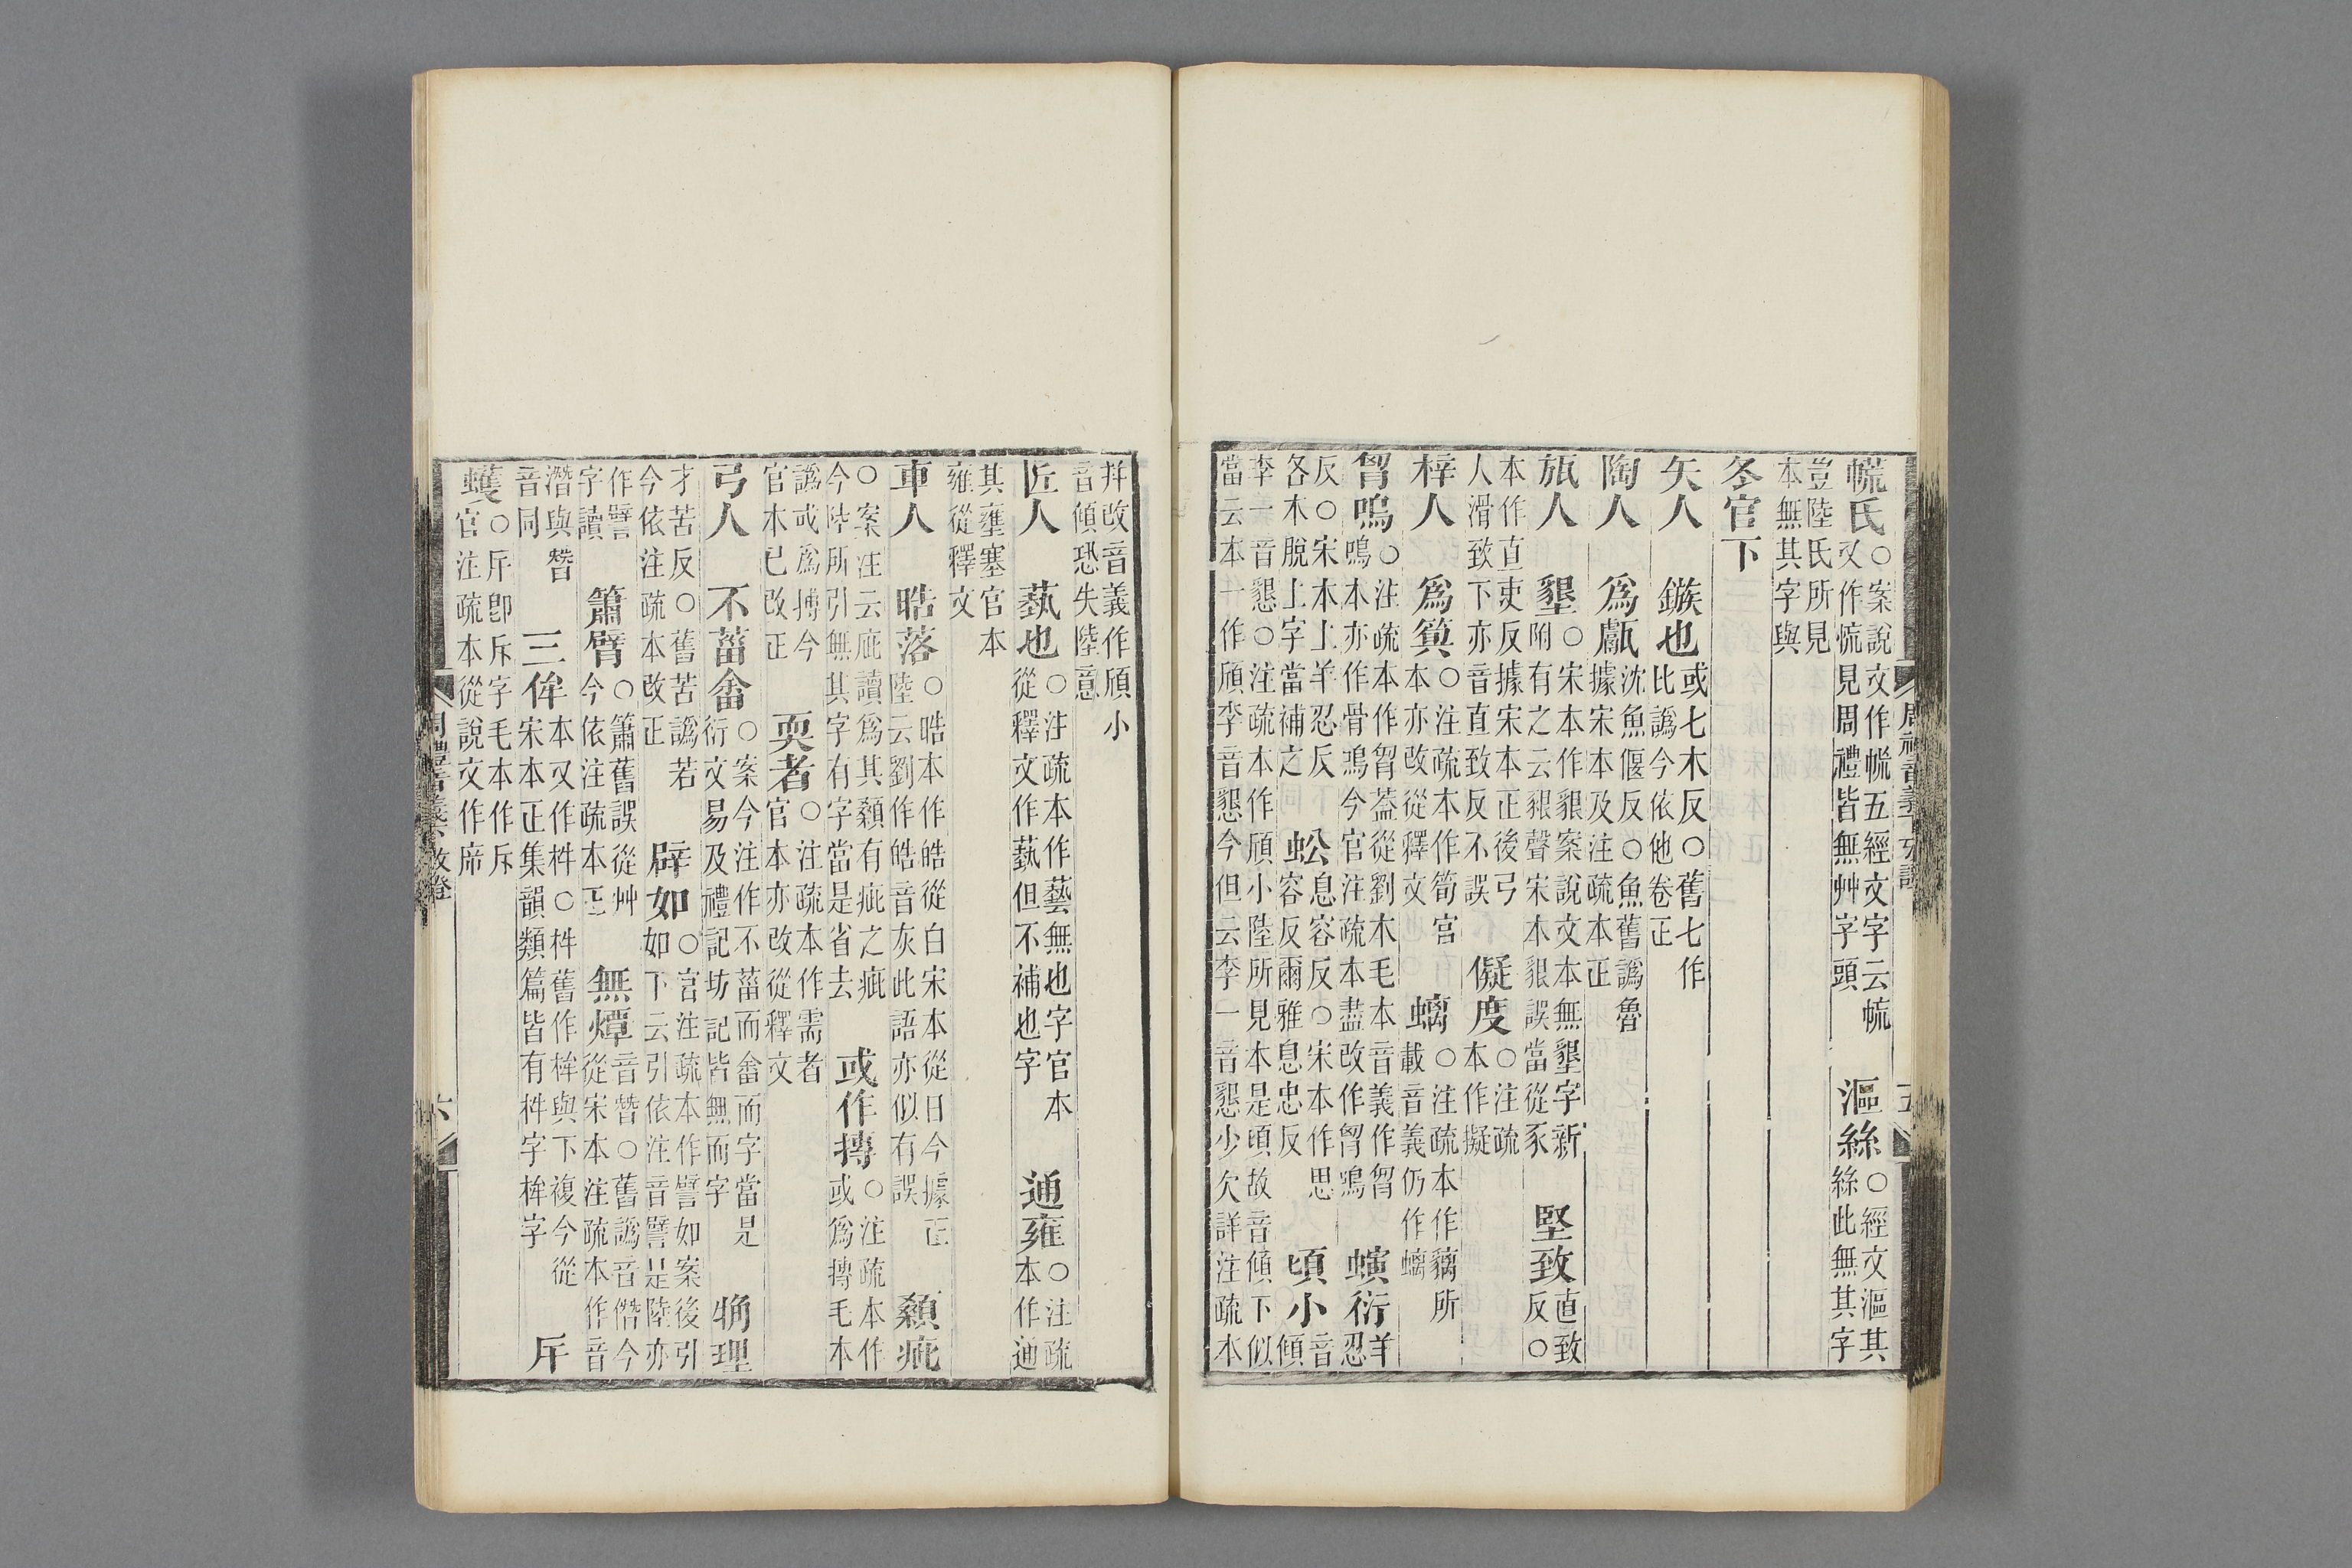 㡛氏○案說文作㡃五經文字云㡛
又作慌見周禮皆無艸字頭
漚絲○經文漚其
絲此無其字
豈陸氏所見
本無其字與
冬官下
矢人 鏃也或七木反○舊七作
比譌今依他卷正
陶人 爲甗沈魚偃反○魚舊譌魯
據宋本及注疏本正
旊人 墾○宋本作豤案說文本無墾字新
附有之云豤聲宋本豤誤當從豕
堅致直致
反○
本作直吏反據宋本正後弓
人滑致下亦音直致反不誤
儗度○注疏
本作擬
梓人 爲簨○注疏本作筍官
本亦改從釋文
螭○注疏本作藕所
載音義仍作螭
胷鳴○注疏本作胷葢從劉木毛本音義作胷
鳴本亦作骨鳴今官注疏本盡改作胷鳴
螾衍羊
忍
反○宋本上羊忍反
各木脫上字當補之
蚣息容反○宋本作思
容反爾雅息忠反
頃小音
傾
李一音懇○注疏本作頎小陸所見本是頃故音傾下似
當云本一作頎李音懇今但云李一音懇少欠詳注疏本
幷改音義作頎小
音傾恐失陸意
匠人 蓺也○注疏本作藝無也字官本
從釋文作蓺但不補也字
通雍○注疏
本作通
其壅塞官本
雍從釋文
車人 晧落○晧本作皓從白宋本從日今據正
陸云劉作皓音灰此語亦似有誤
纇疵
○案注云庇讀爲其纇有疵之疵
今陸所引無其字有字當是省去
或作摶○注疏本作
或爲摶毛本
譌或爲搏今
官木已改正
耎者○注疏本作需者
官本亦改從釋文
弓人 不菑畬○案今注作不菑而畬而字當是
衍文易及禮記坊記皆無而字
觕理
才苦反○舊苦譌若
今依注疏本改正
辟如○官注疏本作譬如案後引
如下云引依注音譬是陸亦
作譬
字讀
簫臂○簫舊誤從艸
今依注疏本正
無燂音朁○舊譌音僭今
從宋本注疏本作音
潛與朁
音同
三侔本又作桙○桙舊作桙與下複今從
宋本正集韻類篇皆有桙字桙字
斥
蠖○斥卽斥字毛本作斥
官注疏本從說文作㡿